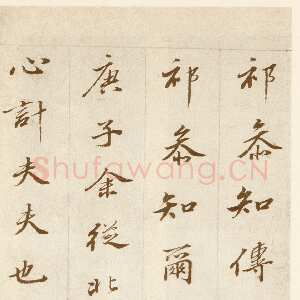 祁叅知傳
祁叅知爾
庚子余從北
心計夫夫也
Shufawang.CN